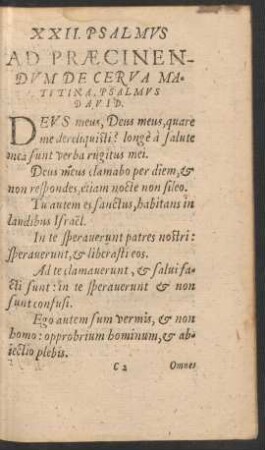 XXII. PSALMVS
AD PRÆCINEN-
DVM DE CERVA MA-
TVTINA, PSALMVS
DAVID.
DEVS meus, Deus meus, quare
me dereliquisti? longè à salute
mea sunt verba rugitus mei.
Deus meus clamabo per diem, &
non respondes, etiam nocte non sileo.
Tu autem es sanctus, habitans in
laudibus Israël.
In te sperauerunt patres nostri:
sperauerunt, & liberasti eos.
Ad te clamauerunt, & salui fa-
cti sunt: in te sperauerunt & non
sunt confusi.
Ego autem sum vermis, & non
homo: opprobrium hominum, & ab-
iectio plebis.
C 2 Omnes